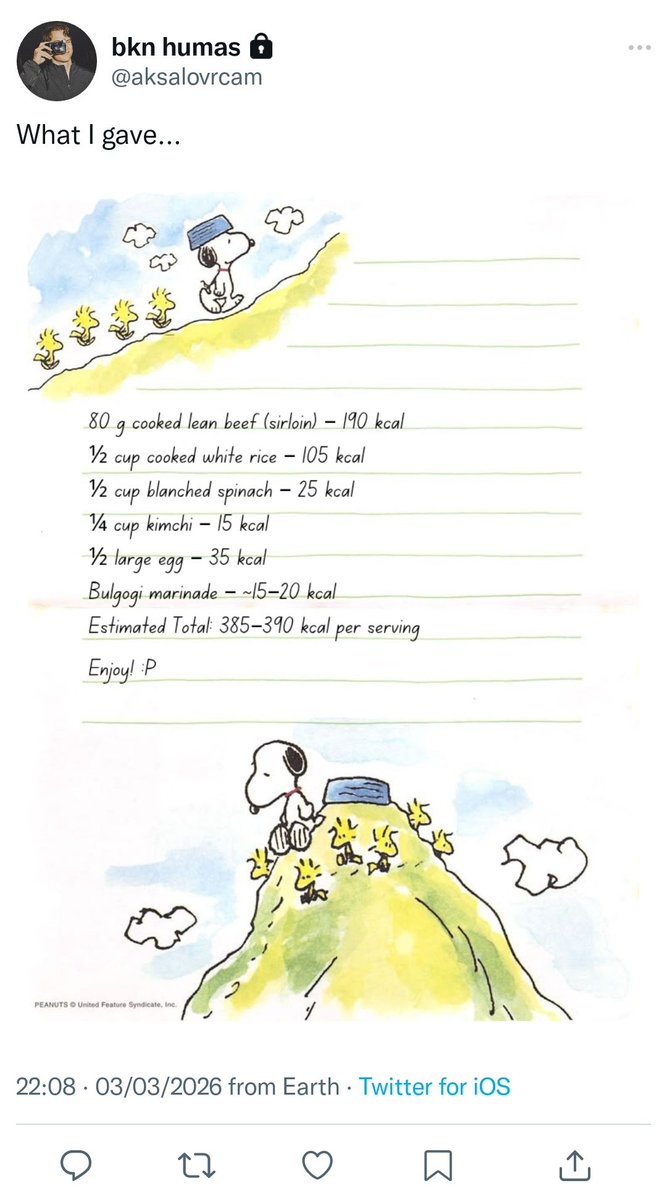 bkn humas
@aksalovrcam
What I gave...
80 g cooked lean beef (sirloin) – 190 kcal
½ cup cooked white rice – 105 kcal
½ cup blanched spinach – 25 kcal
¼ cup kimchi – 15 kcal
½ large egg – 35 kcal
Bulgogi marinade – ~15–20 kcal
Estimated Total: 385–390 kcal per serving
Enjoy! :P
PEANUTS © United Feature Syndicate, Inc.
22:08 · 03/03/2026 from Earth · Twitter for iOS